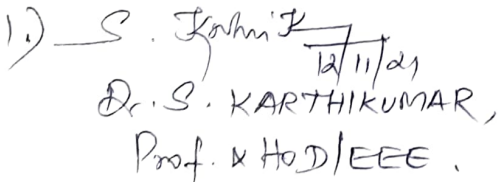 1.) S. Karthik
12/11/21
Dr. S. KARTHIKUMAR,
Prof. & HOD/EEE.